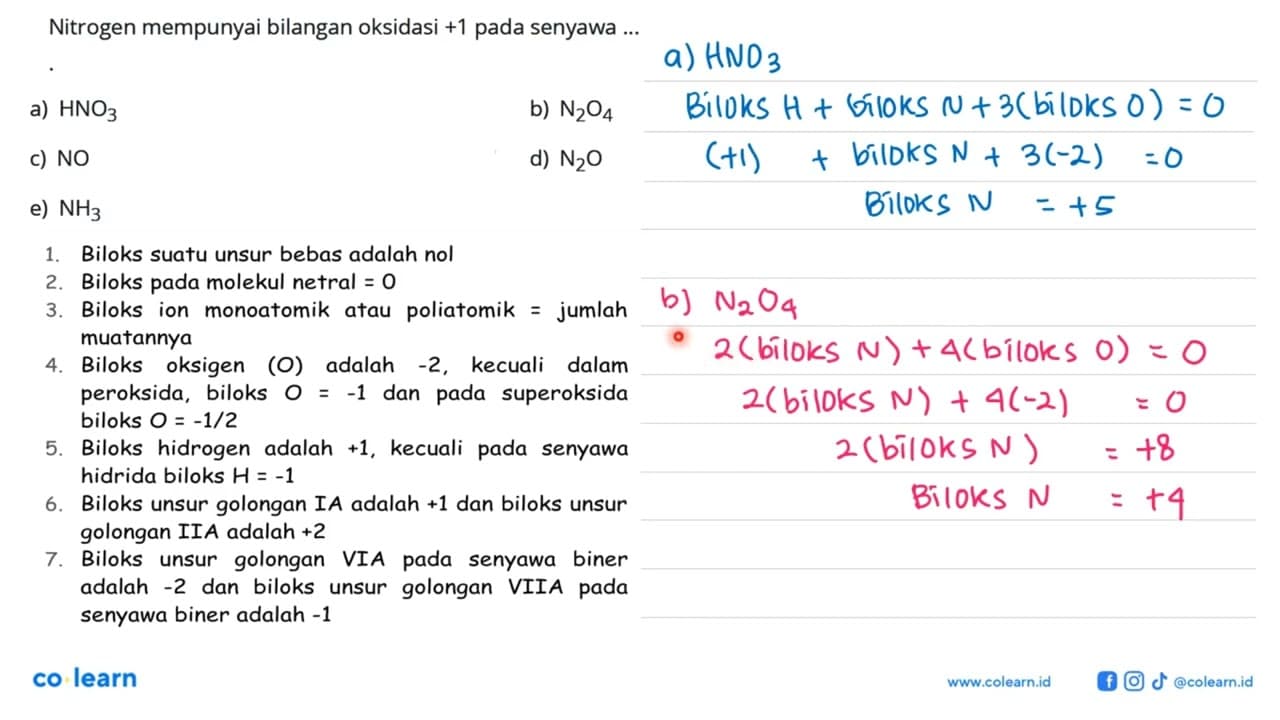 Nitrogen mempunyai bilangan oksidasi +1 pada senyawa ...
.
a) HNO3
b) N2O4
c) NO
d) N2O
e) NH3
1. Biloks suatu unsur bebas adalah nol
2. Biloks pada molekul netral = 0
3. Biloks ion monoatomik atau poliatomik = jumlah
muatannya
4. Biloks oksigen (O) adalah -2, kecuali dalam
peroksida, biloks O = -1 dan pada superoksida
biloks O = -1/2
5. Biloks hidrogen adalah +1, kecuali pada senyawa
hidrida biloks H = -1
6. Biloks unsur golongan IA adalah +1 dan biloks unsur
golongan IIA adalah +2
7. Biloks unsur golongan VIA pada senyawa biner
adalah -2 dan biloks unsur golongan VIIA pada
senyawa biner adalah -1
a) HNO3
Biloks H + biloks N + 3(biloks O) = 0
(+1) + biloks N + 3(-2) = 0
Biloks N = +5
b) N2O4
2(biloks N) + 4(biloks O) = 0
2(biloks N) + 4(-2) = 0
2(biloks N) = +8
Biloks N = +4
co learn
www.colearn.id
@colearn.id